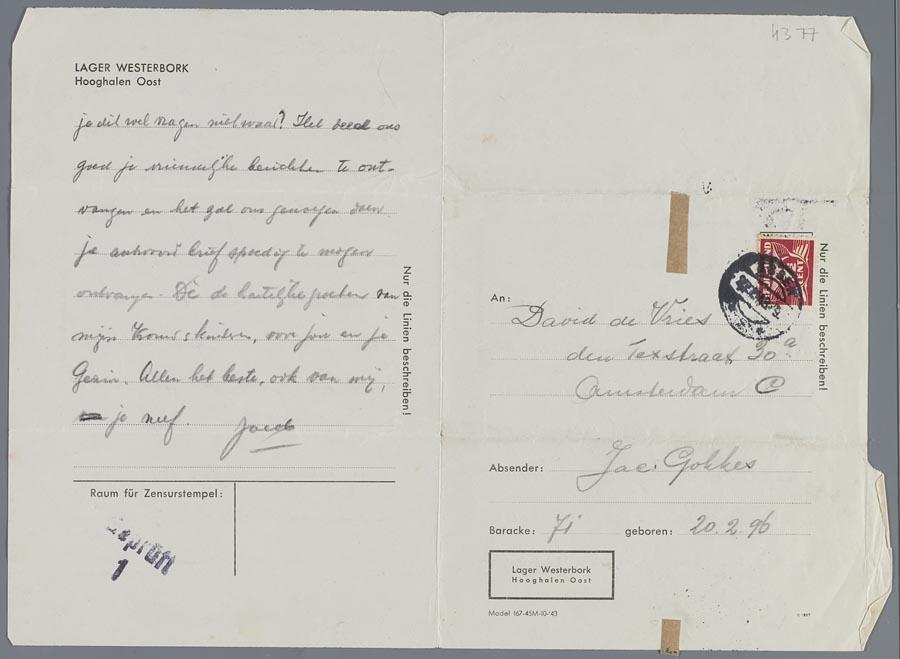 LAGER WESTERBORK
Hooghalen Oost
je dit wel vragen niet waar? Het deed ons
goed je vriendelijke berichten te ont-
vangen en het zal ons genoegen doen
je antwoord brief spoedig te mogen
ontvangen. De hartelijke groeten van
mijn Vrouw & kinderen, voor jou en je
Gezin. Allen het beste, ook van mij,
je neef. Jacob
Nur die Linien beschreiben!
Raum für Zensurstempel:
Geprüft
1
4377
Nur die Linien beschreiben!
An:
David de Vries
den Texstraat 30a
Amsterdam C
Absender: Jac. Gokkes
Baracke: 71 geboren: 20.2.96
Lager Westerbork
Hooghalen Oost
Model 167-45M-10-'43